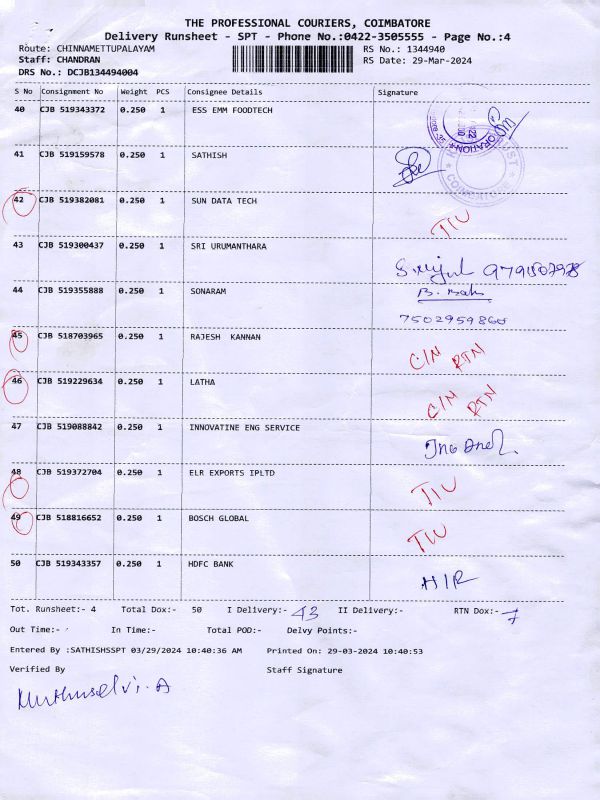 THE PROFESSIONAL COURIERS, COIMBATORE
Delivery Runsheet - SPT - Phone No.:0422-3505555 - Page No.:4
Route: CHINNAMETTUPALAYAM RS No.: 1344940
Staff: CHANDRAN RS Date: 29-Mar-2024
DRS No.: DCJB134494004
S No Consignment No Weight PCS Consignee Details Signature
40 CJB 519343372 0.250 1 ESS EMM FOODTECH
41 CJB 519159578 0.250 1 SATHISH
COIMBATORE
42 CJB 519382081 0.250 1 SUN DATA TECH TIU
43 CJB 519300437 0.250 1 SRI URUMANTHARA
44 CJB 519355888 0.250 1 SONARAM
7502959860
45 CJB 518703965 0.250 1 RAJESH KANNAN C/N RTN
46 CJB 519229634 0.250 1 LATHA C/N RTN
47 CJB 519088842 0.250 1 INNOVATINE ENG SERVICE
48 CJB 519372704 0.250 1 ELR EXPORTS IPLTD TIU
49 CJB 518816652 0.250 1 BOSCH GLOBAL TIU
50 CJB 519343357 0.250 1 HDFC BANK
Tot. Runsheet:- 4 Total Dox:- 50 I Delivery:- 43 II Delivery:- RTN Dox:- 7
Out Time:- In Time:- Total POD:- Delvy Points:-
Entered By :SATHISHSSPT 03/29/2024 10:40:36 AM Printed On: 29-03-2024 10:40:53
Verified By Staff Signature
Muthuselvi. A